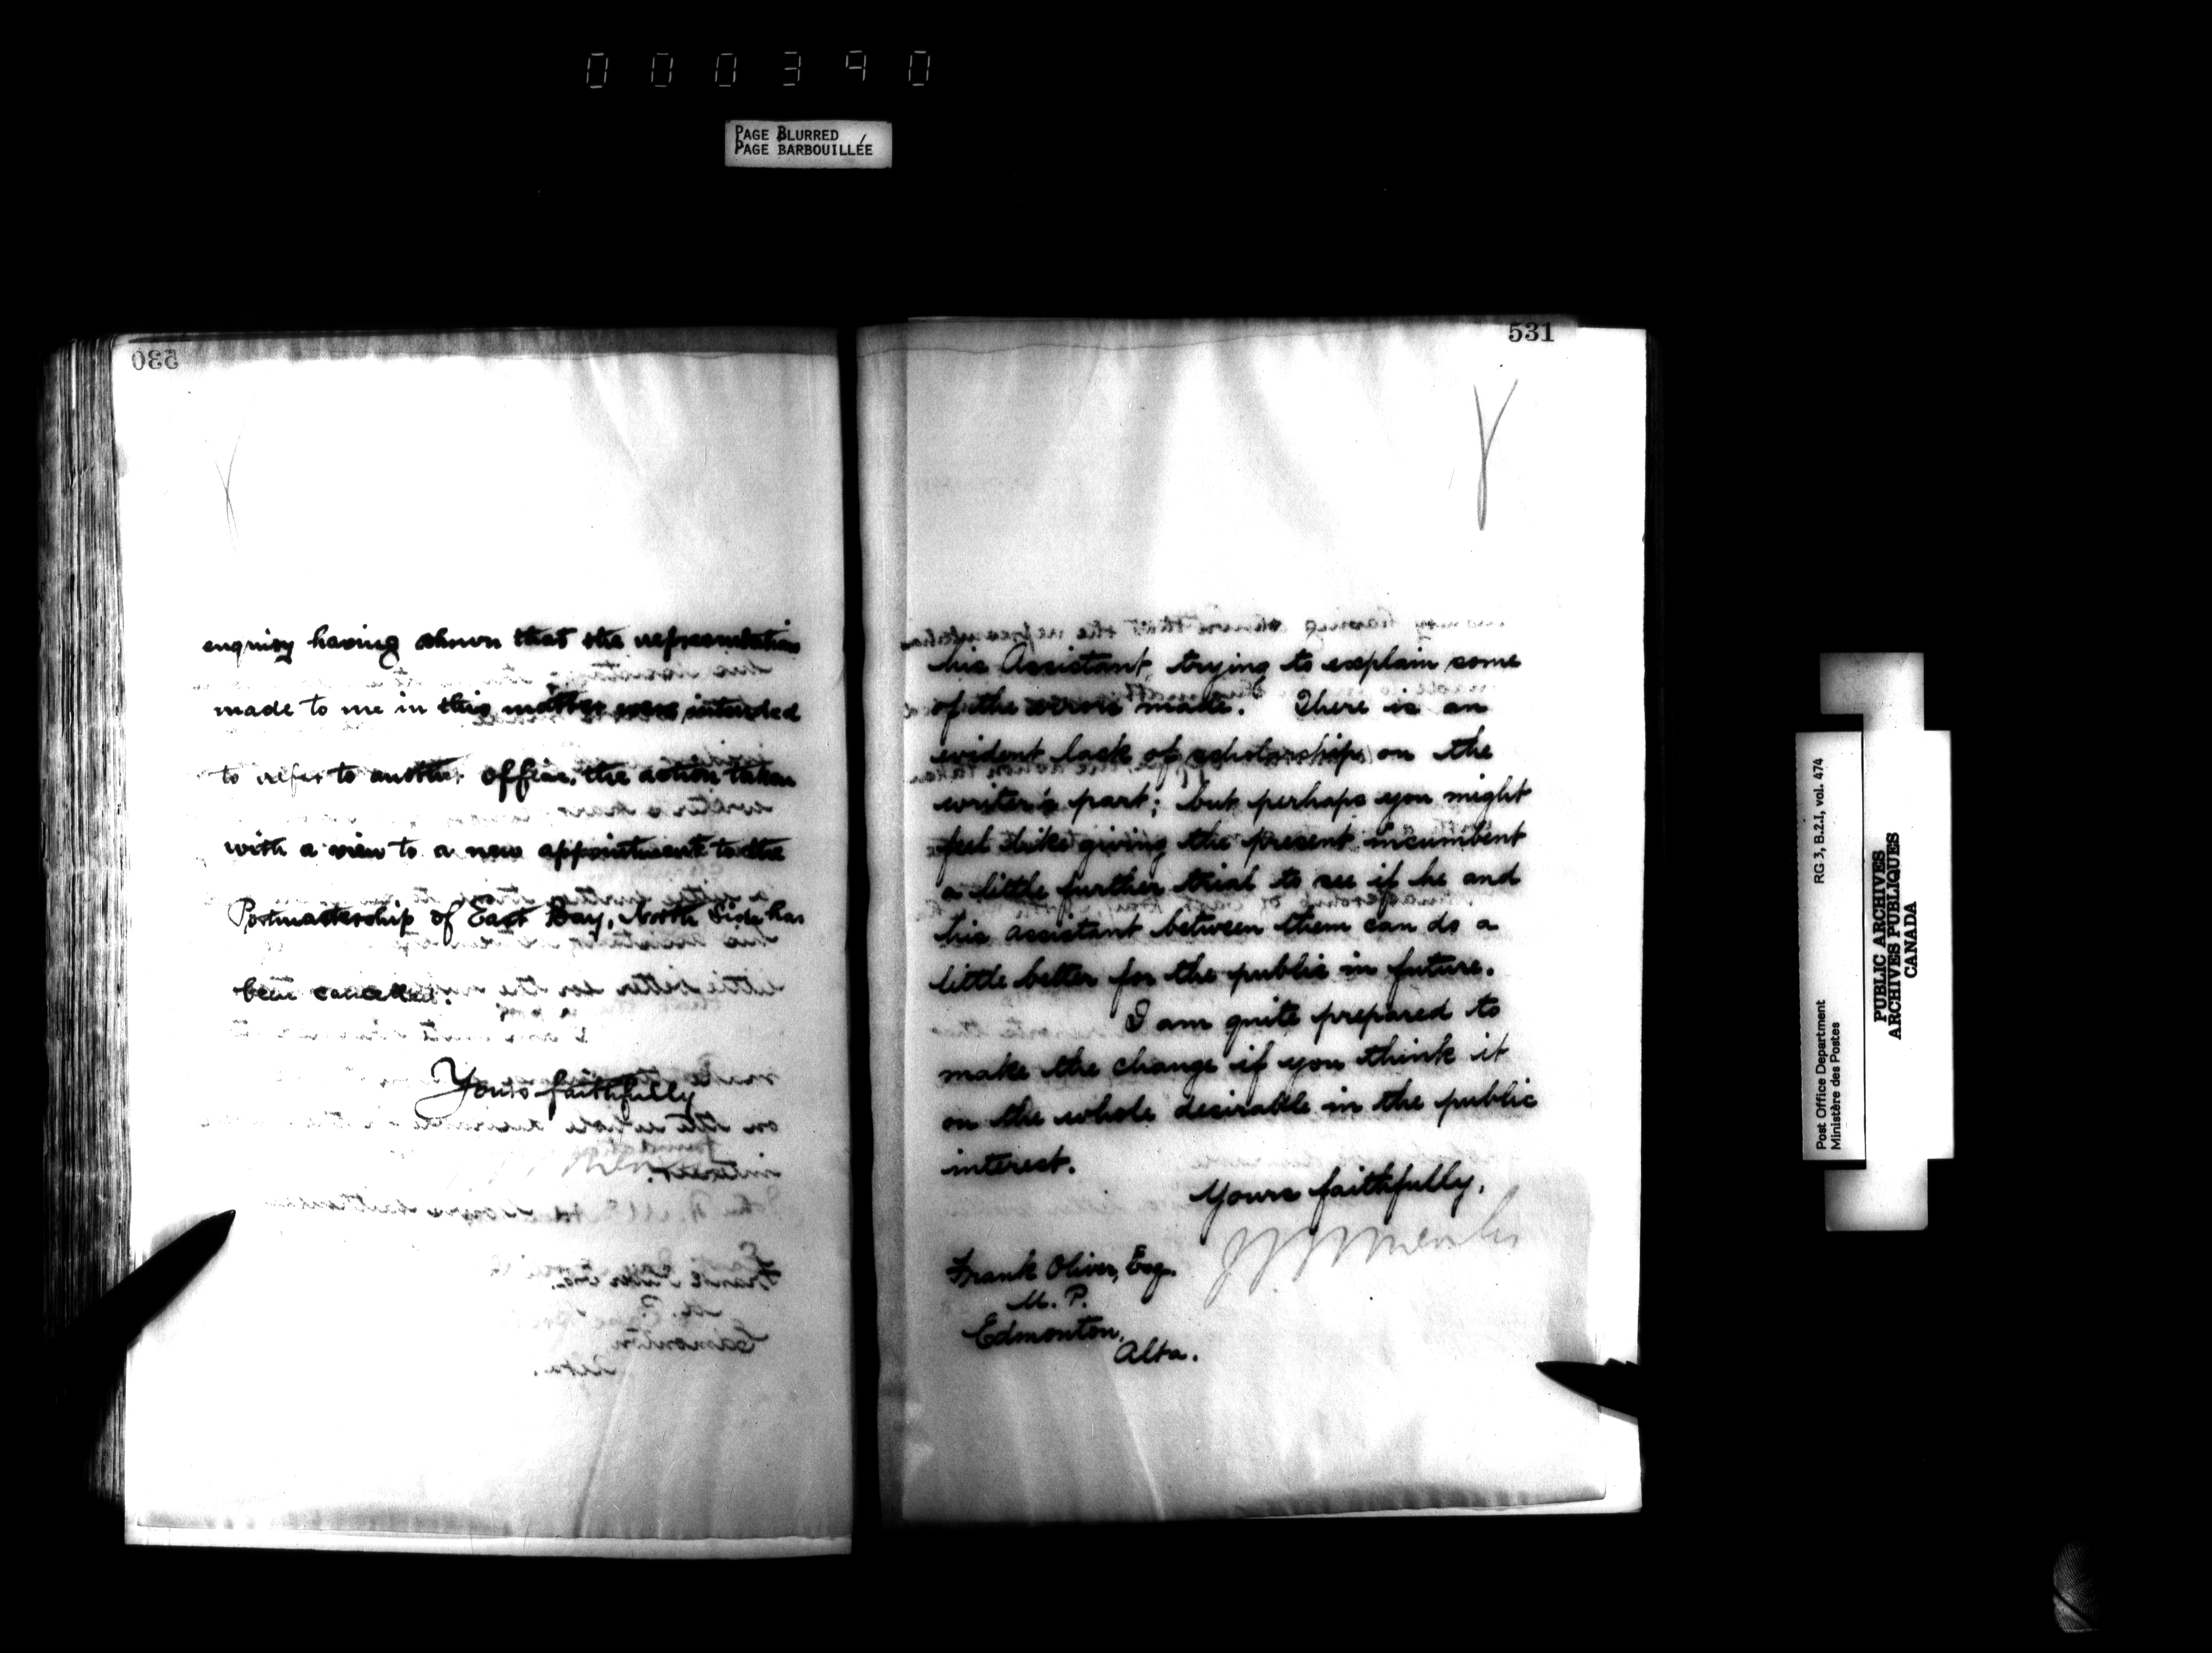 000390
PAGE BLURRED
PAGE BARBOUILLÉE
530
enquiry having shown that the representations
made to me in this matter were intended
to refer to another office, the action taken
with a view to a new appointment to the
Postmastership of East Bay, North Side has
been cancelled.
Yours faithfully
531
his Assistant, trying to explain some
of the errors made. There is an
evident lack of scholarship on the
writer's part; but perhaps you might
feel like giving the present incumbent
a little further trial to see if he and
his assistant between them can do a
little better for the public in future.
I am quite prepared to
make the change if you think it
on the whole desirable in the public
interest.
Yours faithfully,
Frank Oliver, Esq.
M. P.
Edmonton,
Alta.
Post Office Department
Ministère des Postes
RG 3, B.2.1, vol. 474
PUBLIC ARCHIVES
ARCHIVES PUBLIQUES
CANADA